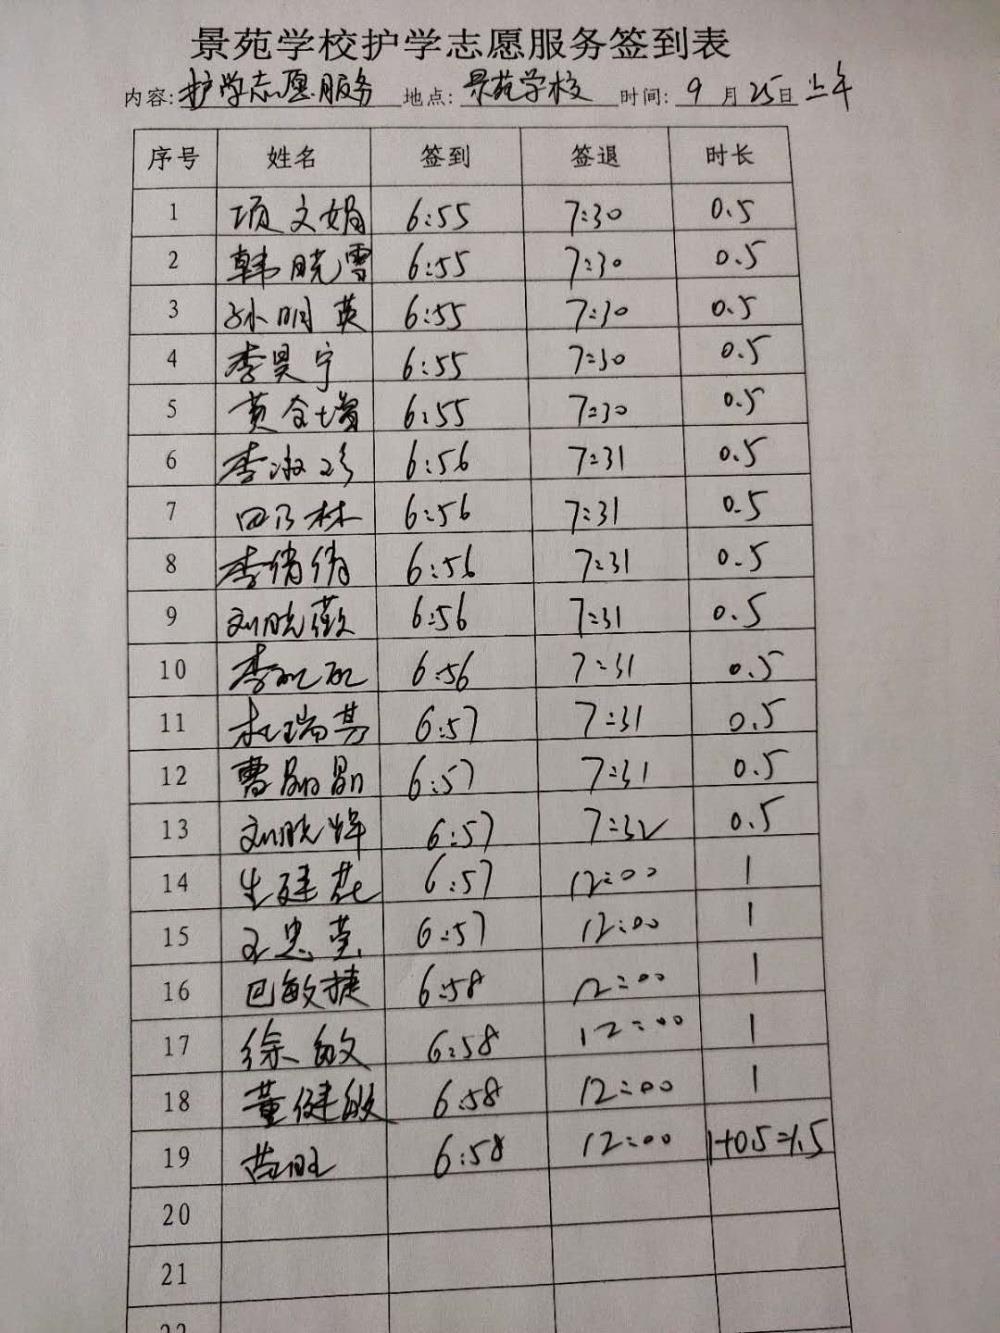 景苑学校护学志愿服务签到表
内容:护学志愿服务 地点:景苑学校 时间:9月25日上午
序号 姓名 签到 签退 时长
1 项文娟 6:55 7:30 0.5
2 韩晓雪 6:55 7:30 0.5
3 孙明英 6:55 7:30 0.5
4 李昊宁 6:55 7:30 0.5
5 黄全增 6:55 7:30 0.5
6 李淑珍 6:56 7:31 0.5
7 田乃林 6:56 7:31 0.5
8 李倩倩 6:56 7:31 0.5
9 刘晓薇 6:56 7:31 0.5
10 李 6:56 7:31 0.5
11 杜瑞芬 6:57 7:31 0.5
12 曹 6:57 7:31 0.5
13 刘晓辉 6:57 7:32 0.5
14 生建花 6:57 12:00 1
15 王忠莹 6:57 12:00 1
16 巴敏捷 6:58 12:00 1
17 徐敏 6:58 12:00 1
18 董健敏 6:58 12:00 1
19 旺 6:58 12:00 1+0.5=1.5
20
21
22